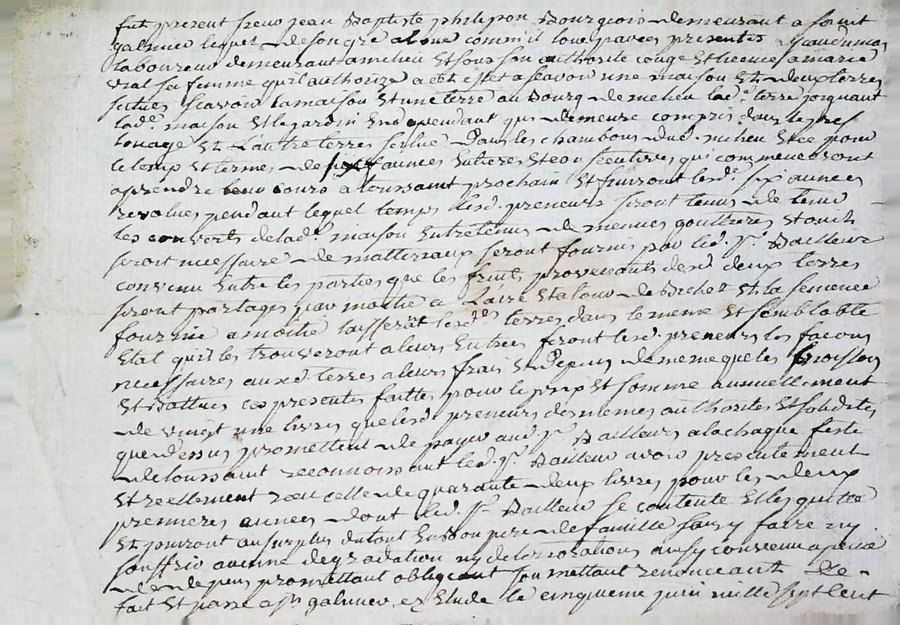 fut present sieur jean Baptiste philipon Bourgeois demeurant a saint
galmier lequel de son gré a loué comm'il loue par ces presentes a
laboureur demeurant a meleu et sous son authorité congé et licence a marie
vial sa femme qu'il authorize a cet effet a scavoir une maison et deux terres
scitues scavoir la maison et une terre au Bourg de meleu lad.e terre joignant
lad.e maison et le jardin En dependant qui demeure compris dans le pres
louage Et l'autre terre scitue Dans les chambons dud. meleu Et ce pour
le temp et termes de six années Entieres et consecutives qui commenceront
a prendre leur cours a toussaint prochain Et finiront lesd.e six années
revolues pendant lequel temps lesd. preneurs seront tenus de tenir
les couverts de lad.e maison Entretenus de menues gouttieres Et ou il
seroit necessaire de matteriaux seront fournis par led. s.r Bailleur
convenu Entre les parties que les fruits provenants desd. deux terres
seront partagés par moitié a l'aire Et a la de Bichet Et la semence
fournie a moitié laisseront lesd.es terres dans le meme Et semblable
Etat qu'il les trouveront a leurs Entrée feront lesd. preneurs les façons
necessaires auxd. terres a leurs frais Et Depens de meme que les moissons
Et Battues ces presentes faittes pour le prix Et somme annuellement
de vingt une livres que lesd. preneurs des memes authorités Et solidités
que dessus promettent de payer aud. s.r Bailleur a la chaque feste
de toussaint reconnoissant led. s.r Bailleur avoir presentement
Et reellement reçu celle de quarante deux livres pour les deux
premieres années dont led. s.r Bailleur se contente Et les quitte
Et jouiront au surplus du tout En bon pere de famille sans y faire ny
souffrir aucune degradation ny deteriorations ainsy convenu a peine
de depens promettant obligeant soumettant renonceant de
fait Et passé a st galmier Etude le cinquieme juin mille sept cent